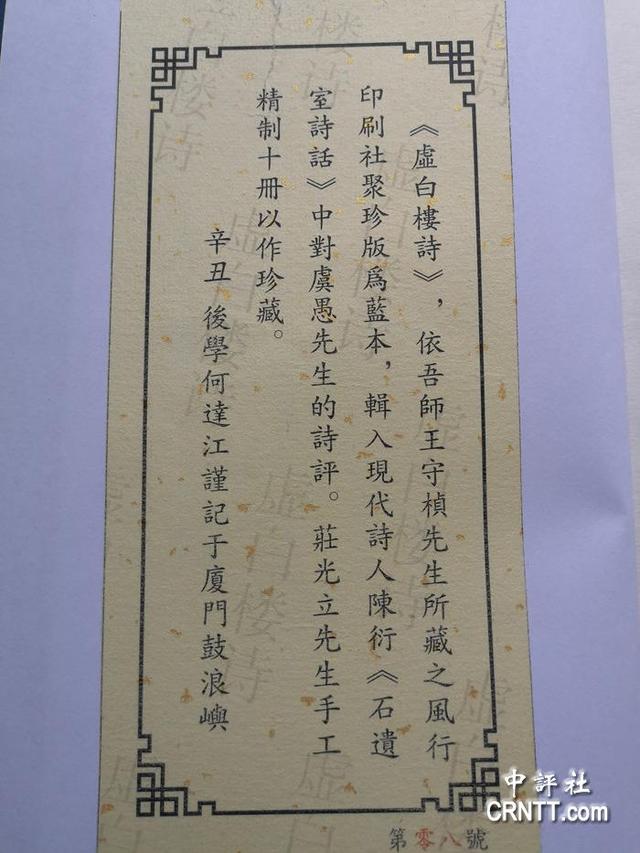 《虛白樓詩》，依吾師王守楨先生所藏之風行
印刷社聚珍版爲藍本，輯入現代詩人陳衍《石遺
室詩話》中對虞愚先生的詩評。莊光立先生手工
精制十冊以作珍藏。
辛丑 後學何達江謹記于廈門鼓浪嶼
第零八號
中評社
CRNTT.com
虚白楼诗